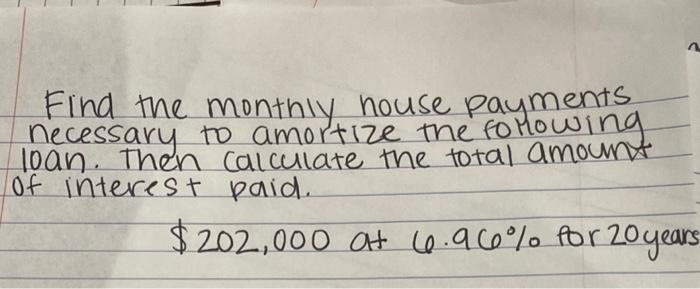 Find the monthly house payments
necessary to amortize the following
loan. Then calculate the total amount
of interest paid.
$202,000 at 6.96% for 20 years